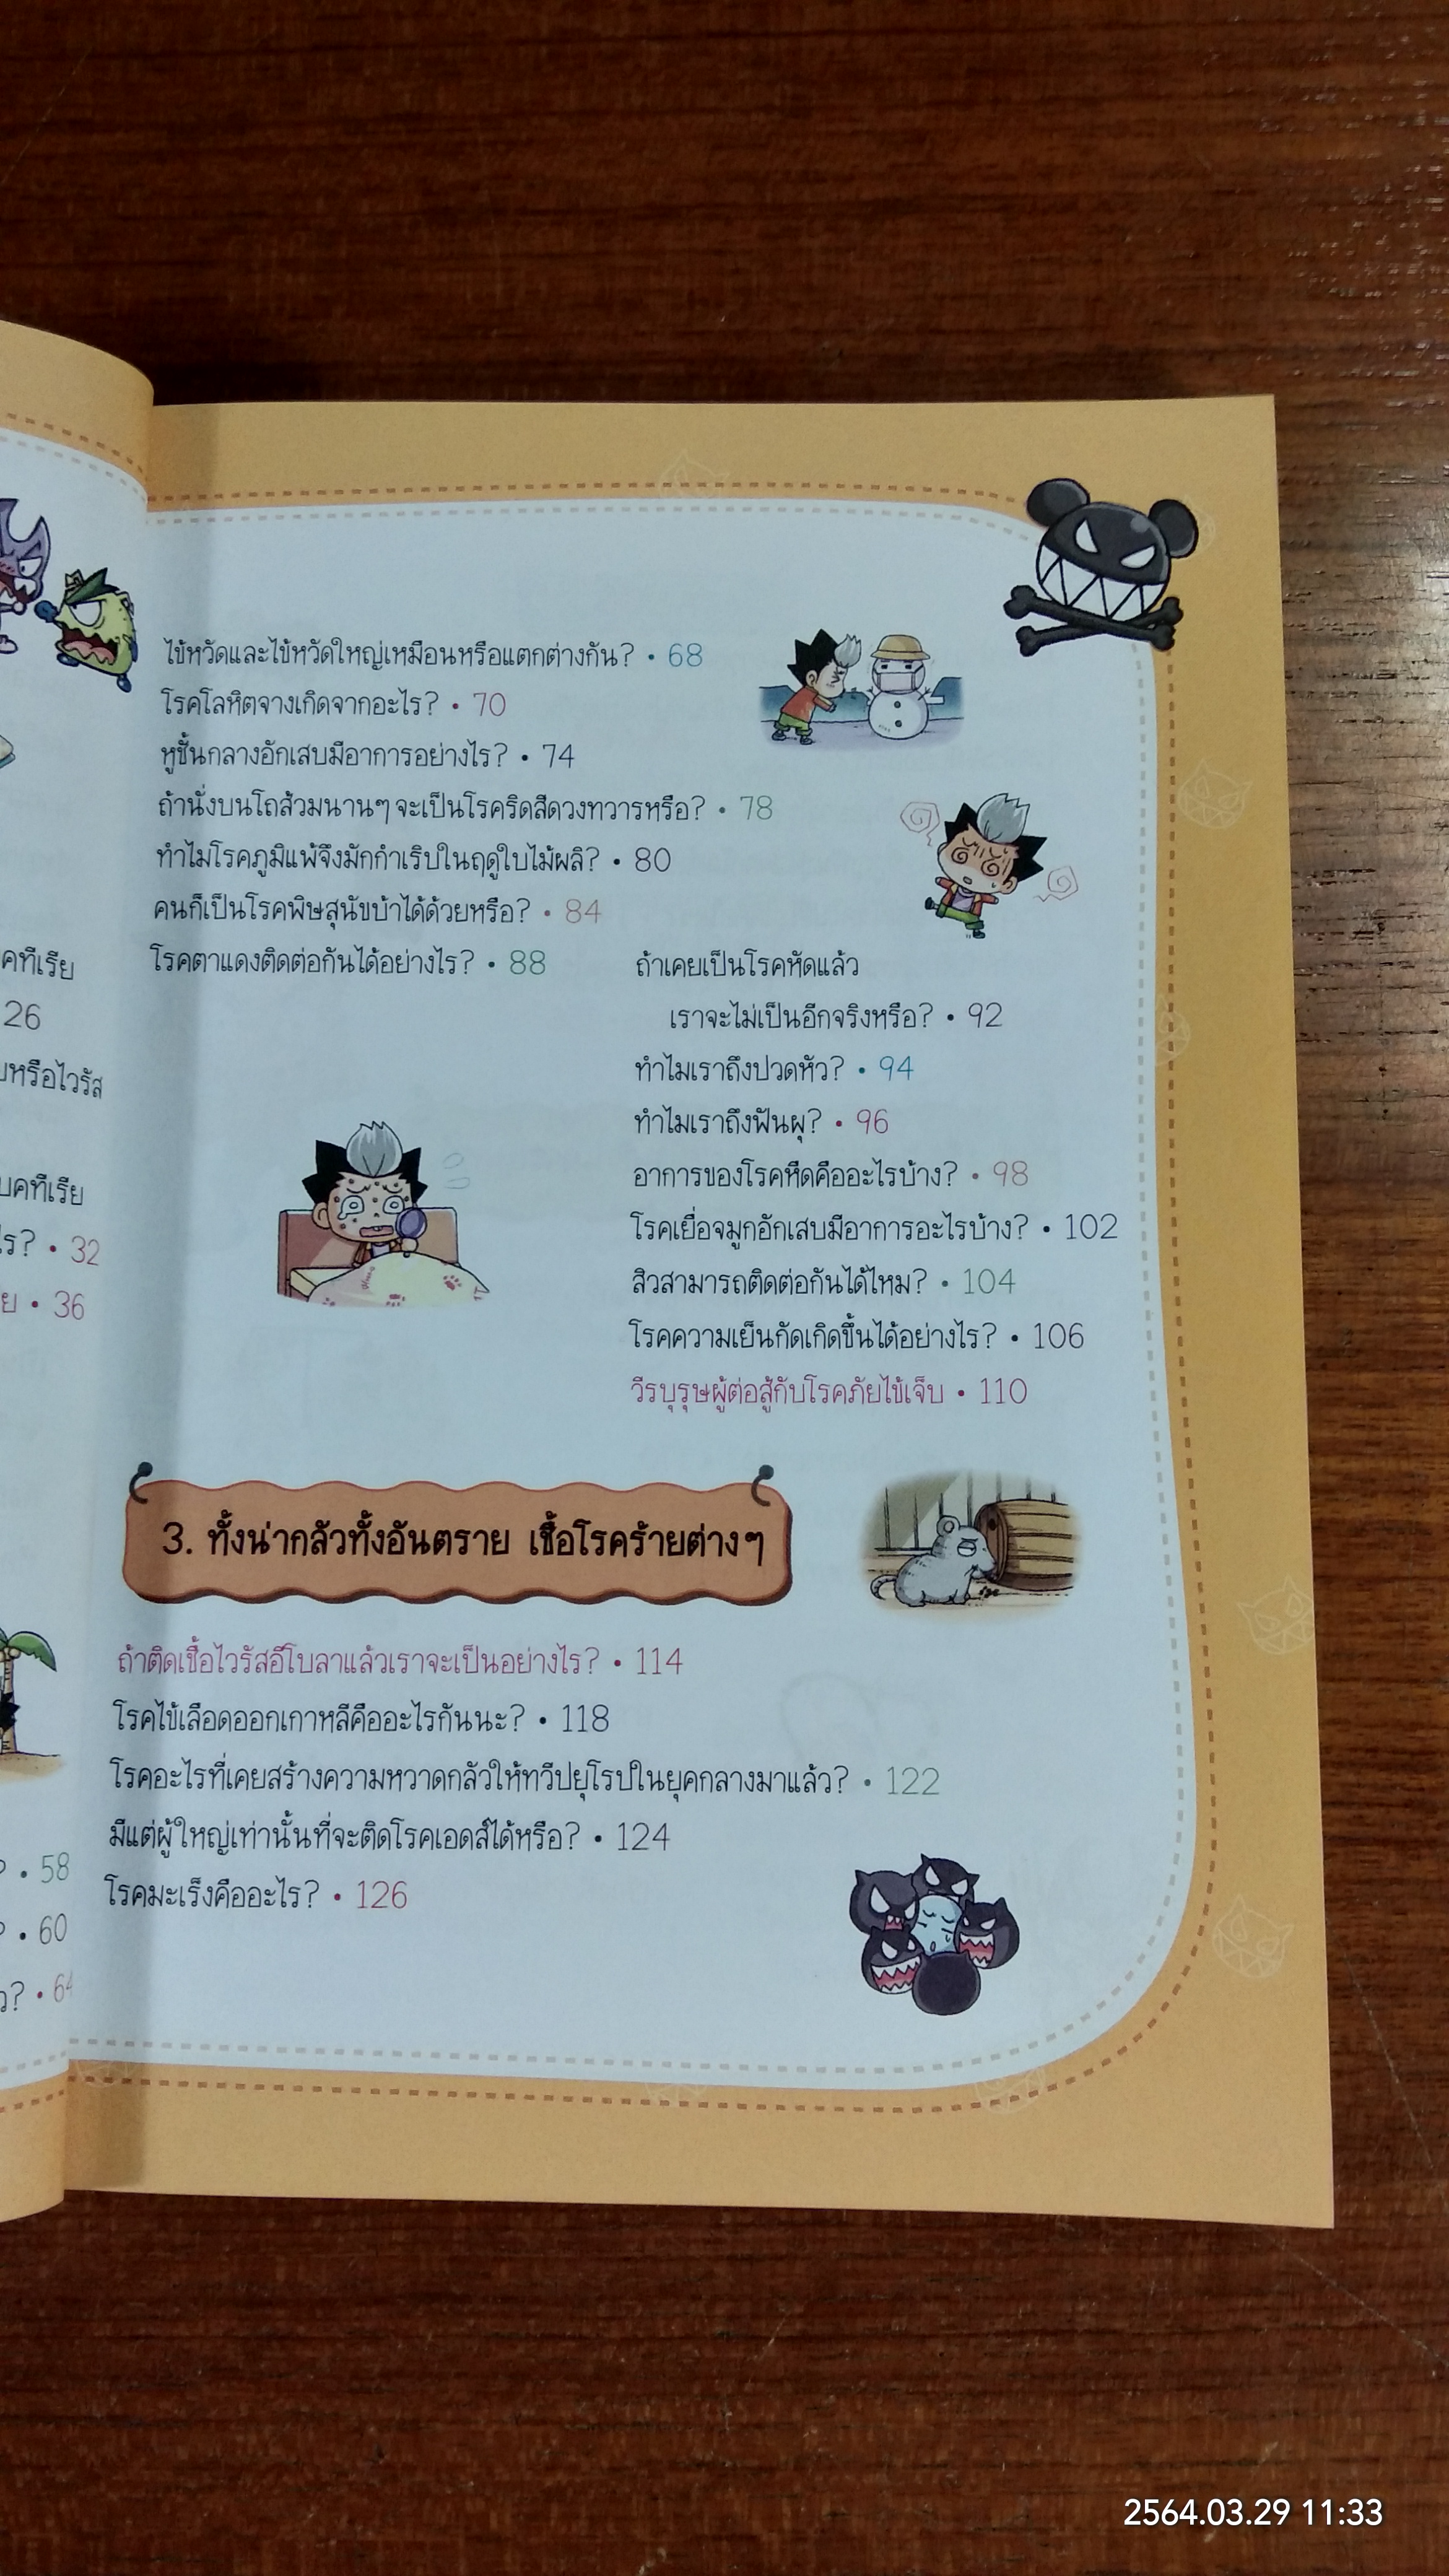 คทีเรีย
26
หรือไวรัส
บคทีเรีย
ไร? • 32
ย • 36
? • 58
? • 60
ว? • 64
ไข้หวัดและไข้หวัดใหญ่เหมือนหรือแตกต่างกัน? • 68
โรคโลหิตจางเกิดจากอะไร? • 70
หูชั้นกลางอักเสบมีอาการอย่างไร? • 74
ถ้านั่งบนโถส้วมนานๆ จะเป็นโรคริดสีดวงทวารหรือ? • 78
ทำไมโรคภูมิแพ้จึงมักกำเริบในฤดูใบไม้ผลิ? • 80
คนก็เป็นโรคพิษสุนัขบ้าได้ด้วยหรือ? • 84
โรคตาแดงติดต่อกันได้อย่างไร? • 88
ถ้าเคยเป็นโรคหัดแล้ว
เราจะไม่เป็นอีกจริงหรือ? • 92
ทำไมเราถึงปวดหัว? • 94
ทำไมเราถึงฟันผุ? • 96
อาการของโรคหืดคืออะไรบ้าง? • 98
โรคเยื่อจมูกอักเสบมีอาการอะไรบ้าง? • 102
สิวสามารถติดต่อกันได้ไหม? • 104
โรคความเย็นกัดเกิดขึ้นได้อย่างไร? • 106
วีรบุรุษผู้ต่อสู้กับโรคภัยไข้เจ็บ • 110
3. ทั้งน่ากลัวทั้งอันตราย เชื้อโรคร้ายต่างๆ
ถ้าติดเชื้อไวรัสอีโบลาแล้วเราจะเป็นอย่างไร? • 114
โรคไข้เลือดออกเกาหลีคืออะไรกันนะ? • 118
โรคอะไรที่เคยสร้างความหวาดกลัวให้ทวีปยุโรปในยุคกลางมาแล้ว? • 122
มีแต่ผู้ใหญ่เท่านั้นที่จะติดโรคเอดส์ได้หรือ? • 124
โรคมะเร็งคืออะไร? • 126
2564.03.29 11:33